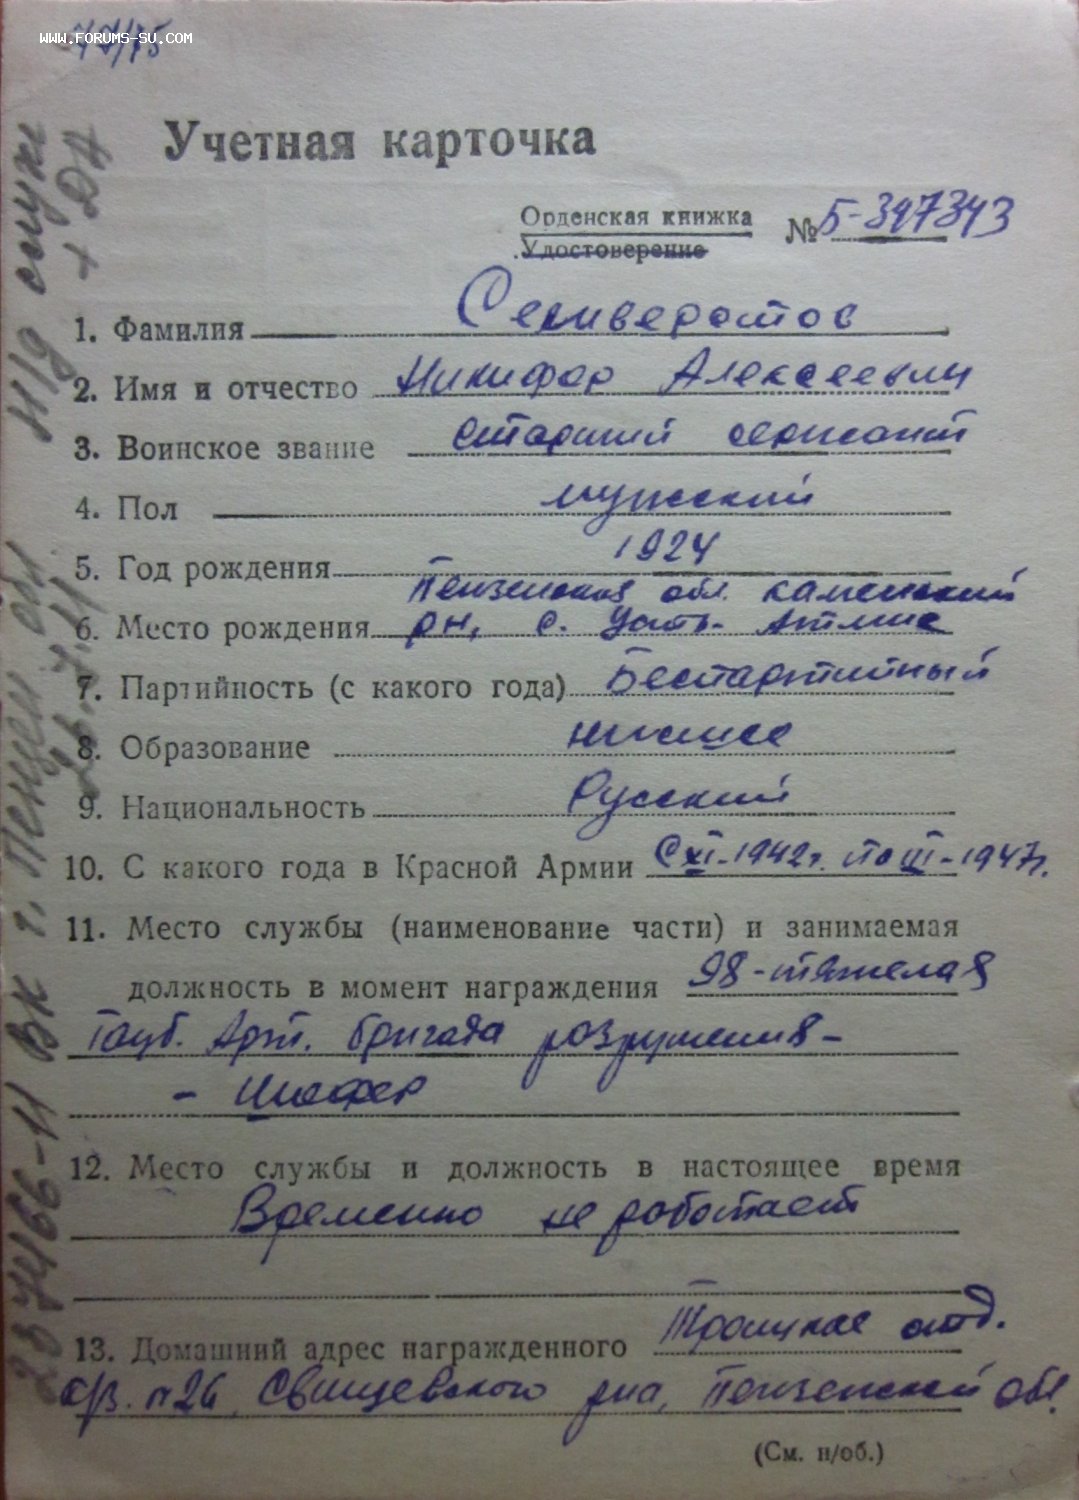 WWW.FORUMS-SU.COM
Учетная карточка
Орденская книжка
Удостоверение
№ Б-347343
1. Фамилия Селиверстов
2. Имя и отчество Никифор Алексеевич
3. Воинское звание старший сержант
4. Пол мужской
5. Год рождения 1924
Пензенская обл. Каменский
6. Место рождения рн, с. Усть-
7. Партийность (с какого года) Беспартийный
8. Образование низшее
9. Национальность Русский
10. С какого года в Красной Армии С XI-1942г. по III-1947г.
11. Место службы (наименование части) и занимаемая
должность в момент награждения 98-тяжелая
Гауб. Арт. бригада разрушения-
- Шофер
12. Место службы и должность в настоящее время
Временно не работает
13. Домашний адрес награжденного
Свищевского рна, Пензенской обл.
(См. н/об.)